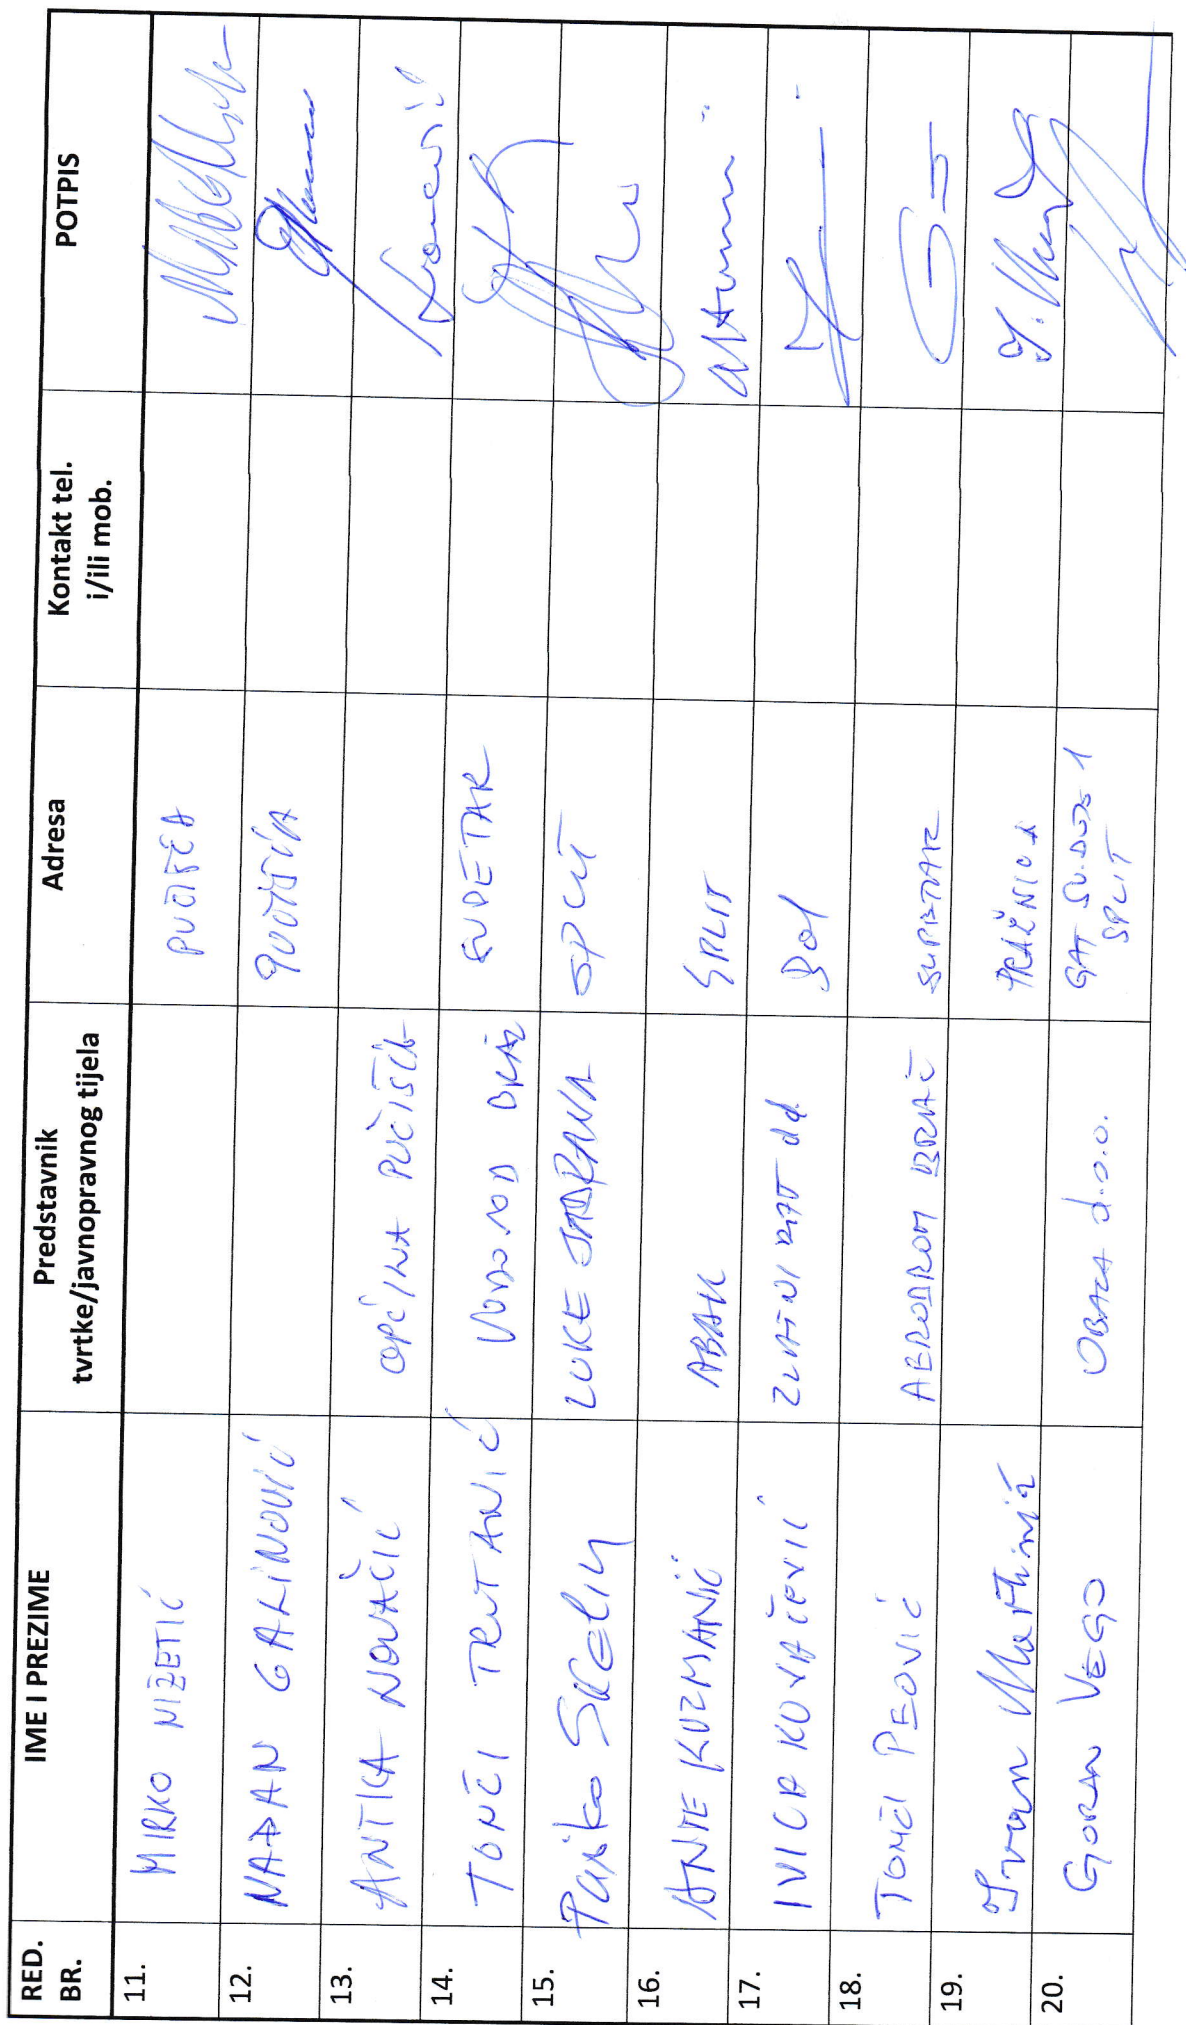 RED. BR. IME I PREZIME Predstavnik tvrtke/javnopravnog tijela Adresa Kontakt tel. i/ili mob. POTPIS
11. MIRKO NIŽETIĆ PUČIŠĆA
12. NAĐAN GALINOVIĆ PUČIŠĆA
13. ANTICA NOVAČIĆ OPĆINA PUČIŠĆA
14. TONČI TRUTANIĆ VODOVOD BRAČ SUPETAR
15. LUKE SPLIT
16. ANTE KUZMANIĆ ABAK SPLIT
17. IVICA KOVAČEVIĆ ZLATNI RAT dd Bol
18. TONČI PEOVIĆ AERODROM BRAČ SUPETAR
19. Ivan Martinić PRAŽNICA
20. GORAN VEGO OBALA d.o.o. GAT SV. DUJE 1
SPLIT